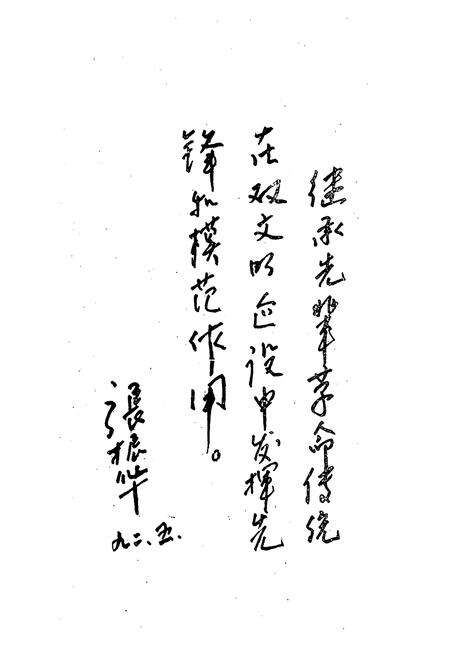 继承先辈革命传统
在双文明建设中发挥先
锋和模范作用。
張振华
九二.五.